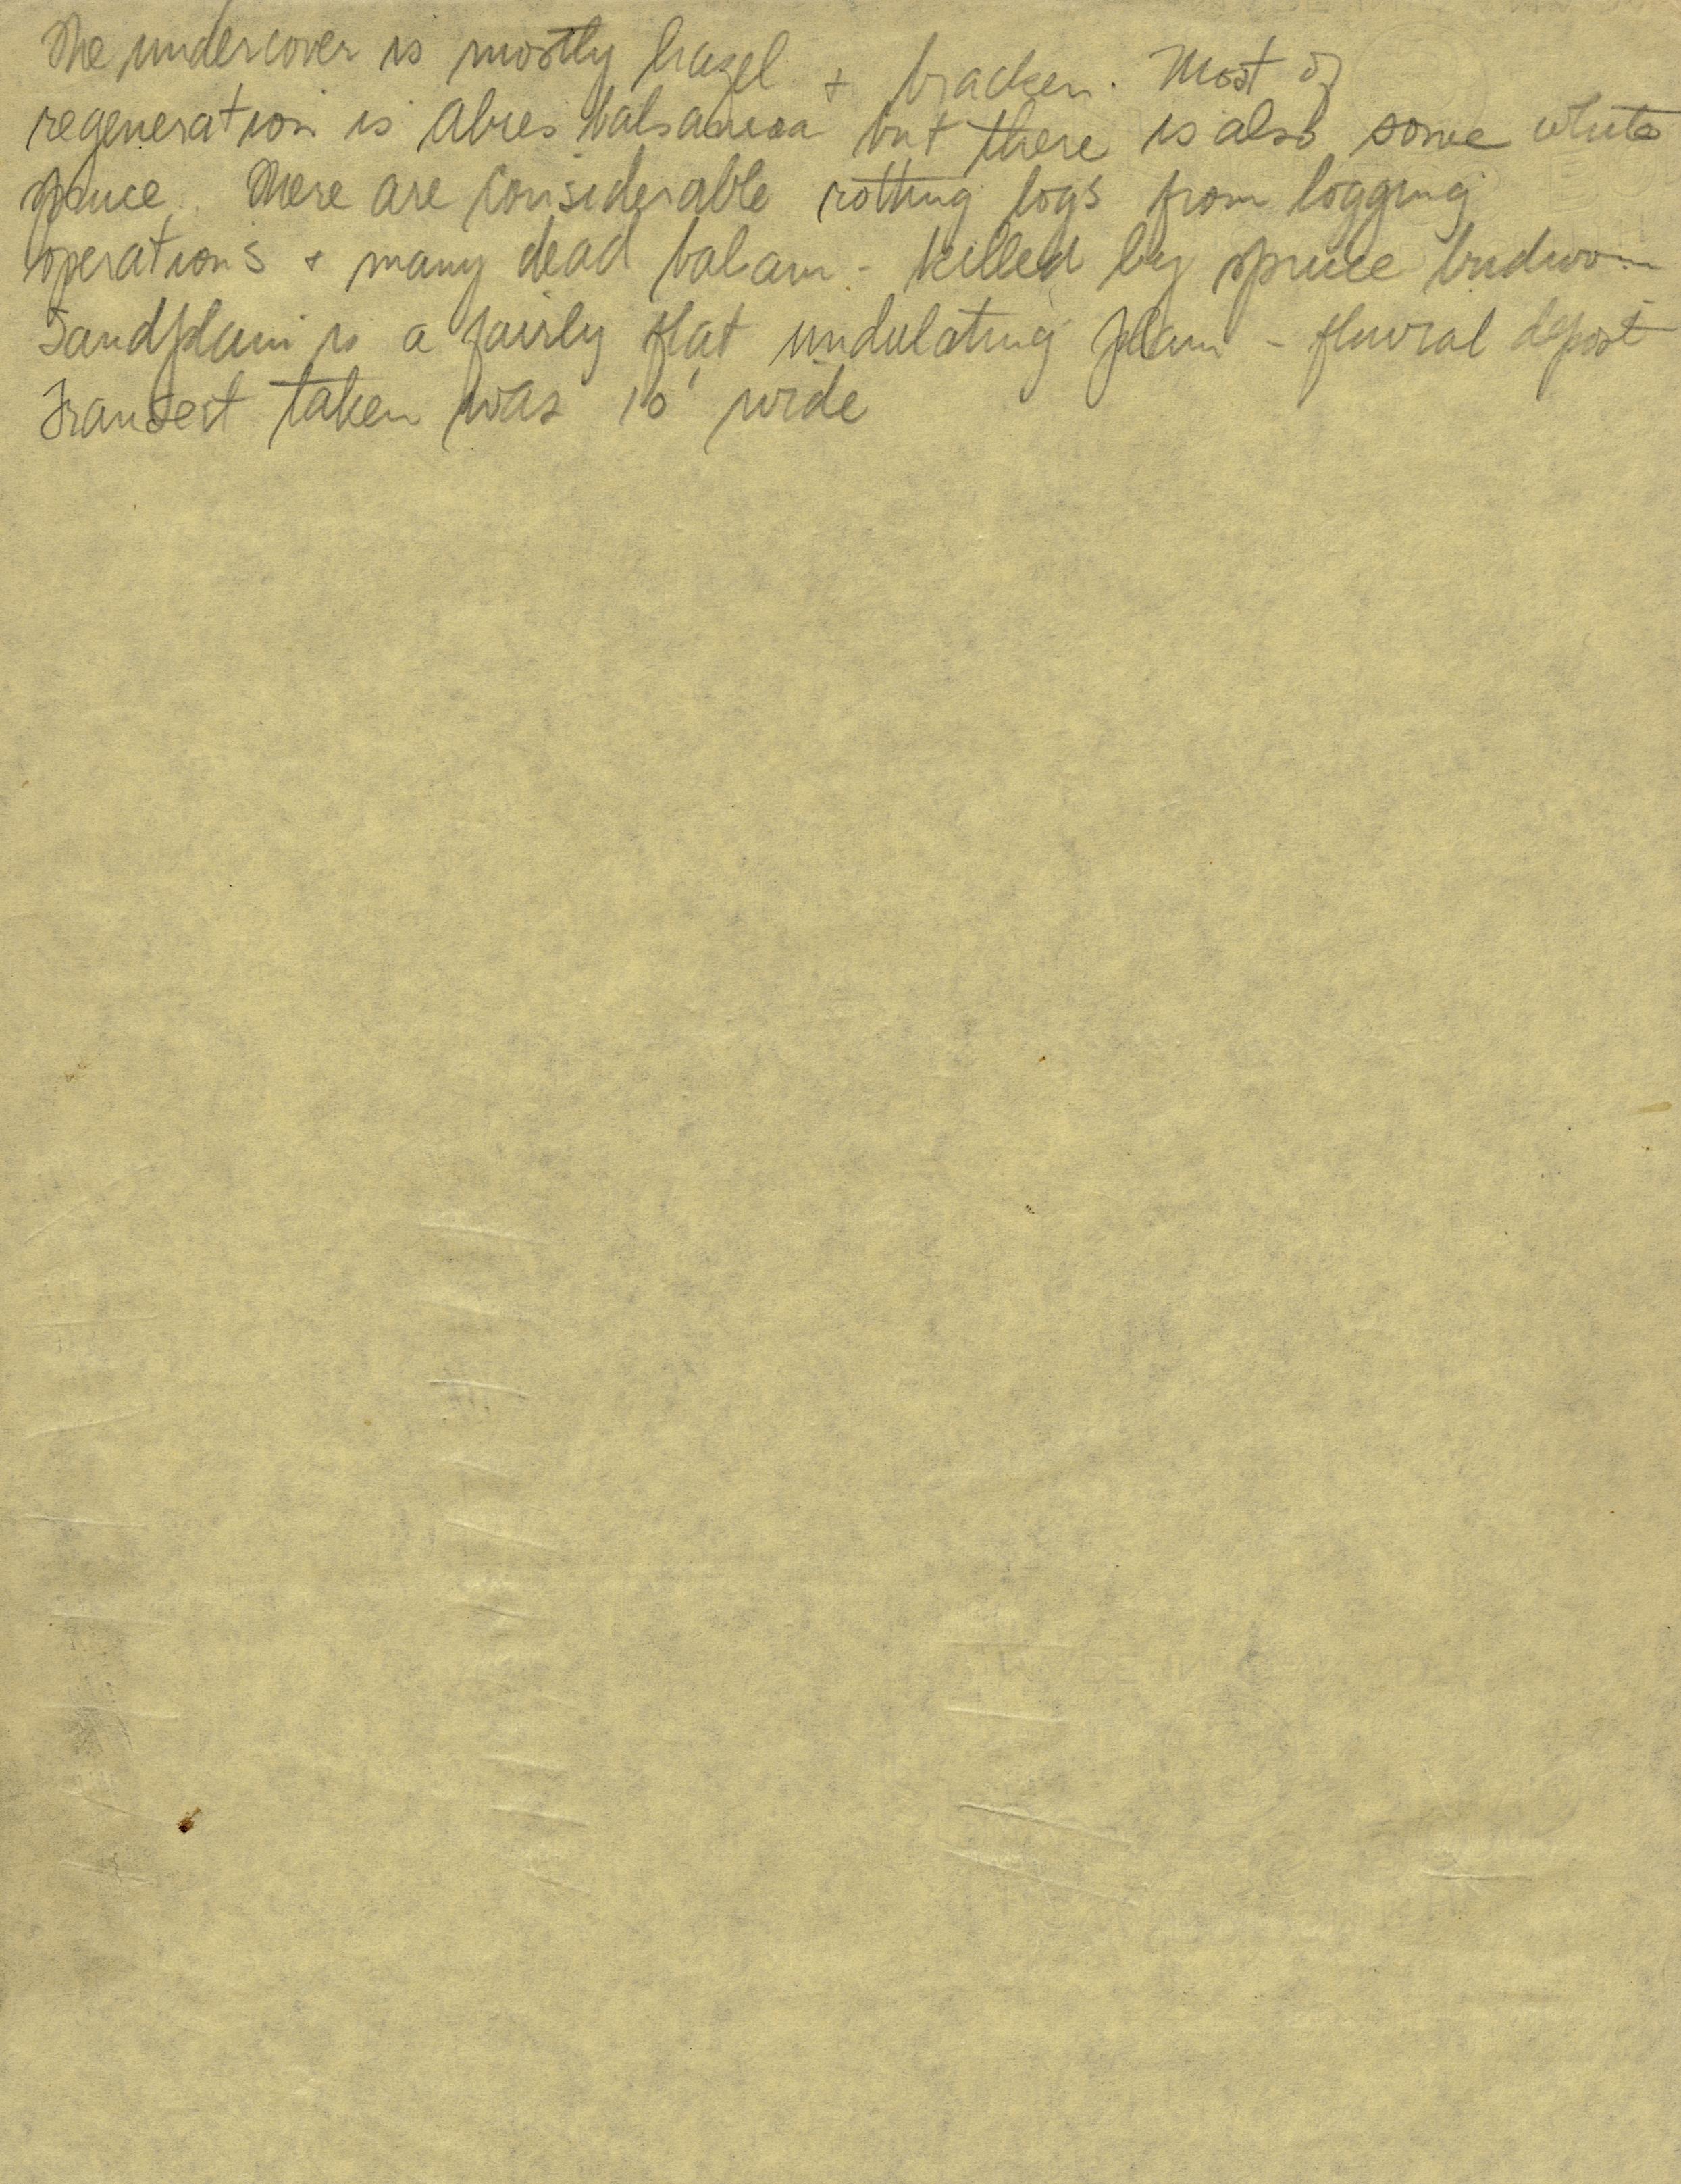 The undercover is mostly hazel + bracken. Most of
regeneration is Abies balsamea but there is also some white
spruce. There are considerable rotting logs from logging
operations + many dead balsam - killed by spruce budworm
Sandplain is a fairly flat undulating plain - fluvial deposit
Transect taken was 10' wide